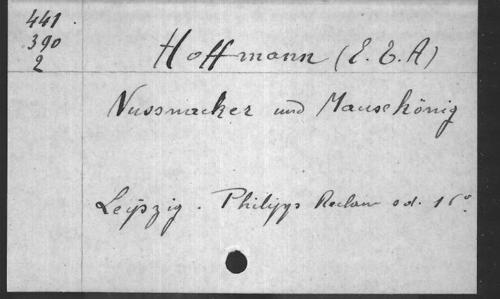 441
390
2
Hoffmann (E. T. A)
Nussnacker und Mausekönig
Leipzig. Philipps Reclam s d. 16º